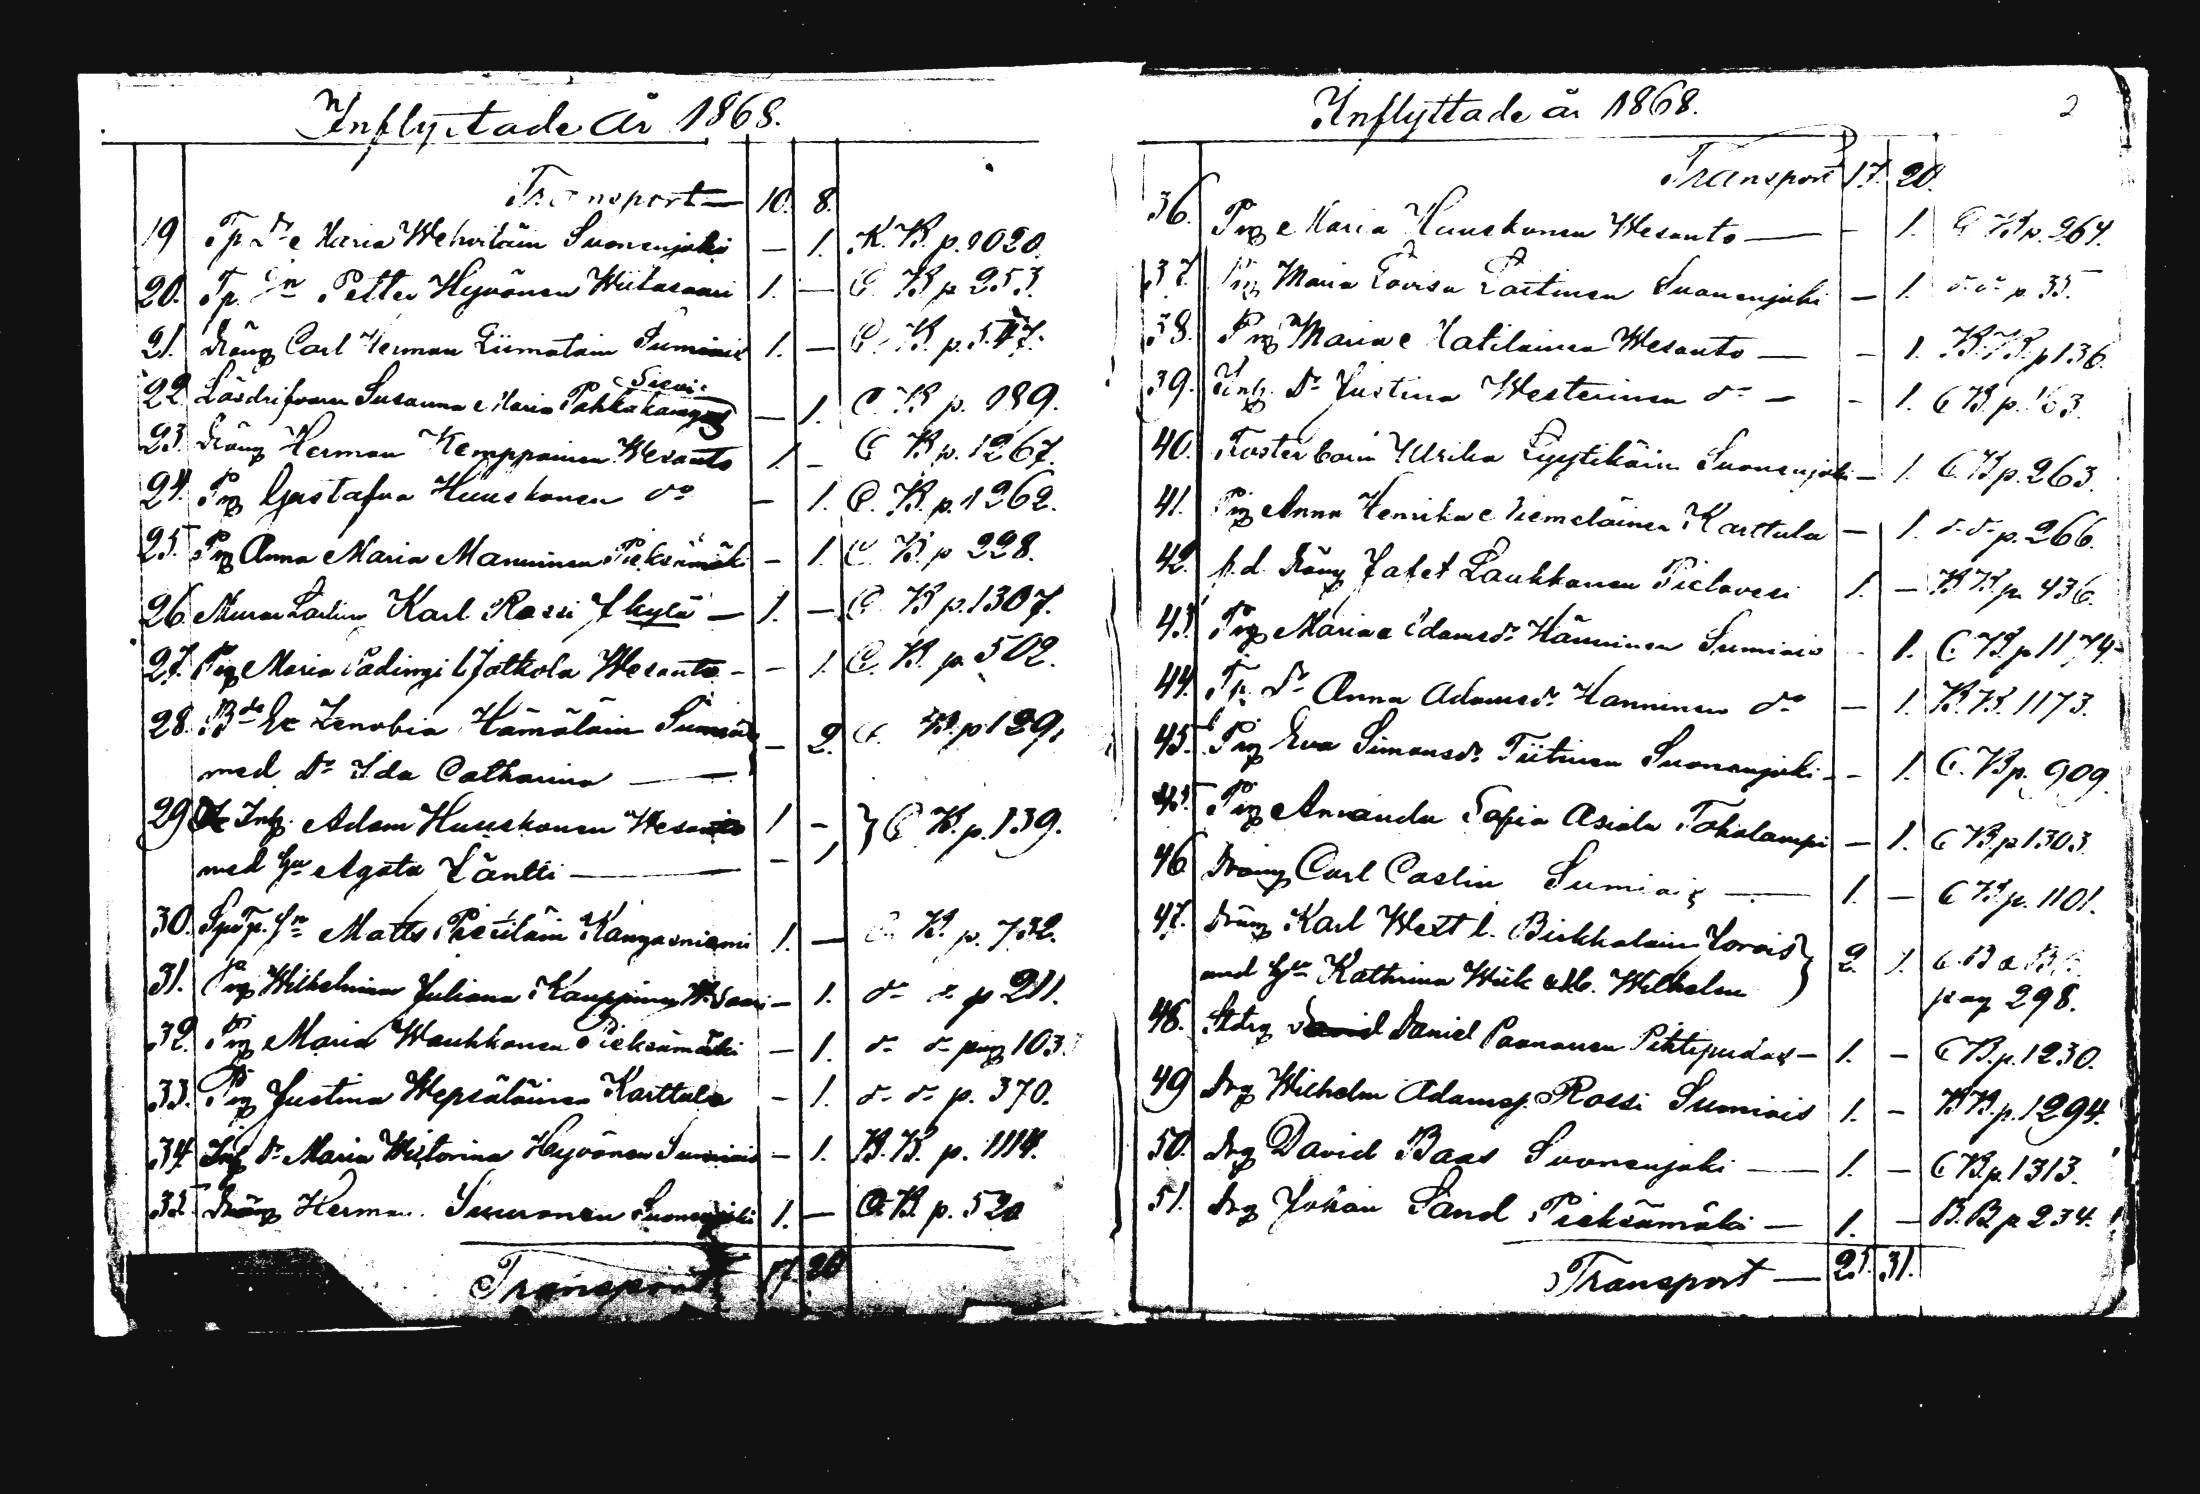 Inflyttade År 1868.
Transport — 10. 8.
19 Tp Dr Maria Wehviläin Suonenjoki — 1. K.B. p. 1020.
20. Tp Sn Petter Hyvönen Wiitasaari 1. — C. B p 253.
21. Dräng Carl Herman Liimatain Sumiais 1. — C. B. p. 547.
Sievi
22 Lösdrifvaren Susanna Maria Pahkakangas — 1. C. B p. 189.
23. Dräng Herman Kemppainen Wesanto 1. — C B p. 1267.
24. Pig Gustafva Huuskonen do — 1. C. B. p. 1262.
25. Pig Anna Maria Manninen Pieksämäki — 1. C. B p 228.
26 Murar Karl Rossi Jkylä — 1. — C. B p. 1307.
27. Pig Maria Jatkola Wesanto — — 1. C. B. p. 502.
28. Zenobia Hämäläin Sumiais — 2. C. B. p 129,
med Dr Ida Catharina —
29 Inh. Adam Huuskonen Wesanto 1 — } C B. p. 139.
med Hu Agata Jäntti — — 1
30. Matts Kangasniemi 1. — C B. p. 732.
31. Pig Wilhelmina Juliana Kauppinen W:saari — 1. do do p 211.
32. Pig Maria Waukkonen Pieksämäki — 1. do do pag 103.
33. Pig Justina Wepsäläinen Karttula — 1. do do p. 370.
34. Inh Dr Maria Wistorina Hyvönen Sumiais — 1. B. B. p. 1114.
35. Dräng Herman Suuronen Suonenjoki 1. — C. B. p. 520
Transport 17. 20
Inflyttade år 1868. 2
Transport 17. 20.
36. Pig Maria Huuskonen Wesanto — — 1. C B p. 264.
37. Pig Maria Lovisa Lartinen Suonenjoki — 1. do do p. 35.
38. Pig Maria Matilainen Wesanto — — 1. B. B. p 136.
39. Inh. Dr Justina Westerinen do — — 1. C B. p. 163.
40. Fosterbarn Ulrika Lyytikäin Suonenjoki — 1. C. B p. 263.
41. Pig Anna Henrika Niemeläinen Karttula — 1. do do p. 266.
42. f.d. Dräng Jafet Laukkanen Pielavesi 1. — B B. p. 436.
43. Pig Maria Adamsdr Hänninen Sumiais — 1. C B p 1174.
44. Tp. Dr Anna Adamsdr Hanninen do — 1. B. B. 1173.
45. Pig Eva Simonsdr Tiitinen Suonenjoki — — 1. C. B p. 909.
45. Pig Amanda Sofia Asiala Toholampi — 1. C B. p 1303.
46 Dräng Carl Castin Sumiais — 1. — C B. p. 1101.
47. Dräng Karl West l. Birkkalain Jorois } 2. 1. C. B
med Hu Kathrina Wiik Wilhelm pag 298.
48. Daniel Paananen Pihtipudas — 1. — C B. p. 1230.
49 Drg Wilhelm Adamsj. Rossi Sumiais 1. — B B. p. 1294.
50. Drg David Baas Suonenjoki — 1. — C B. p. 1313.
51. Drg Johan Sand Pieksämäki — 1. — B. B p 234.
Transport — 25. 31.